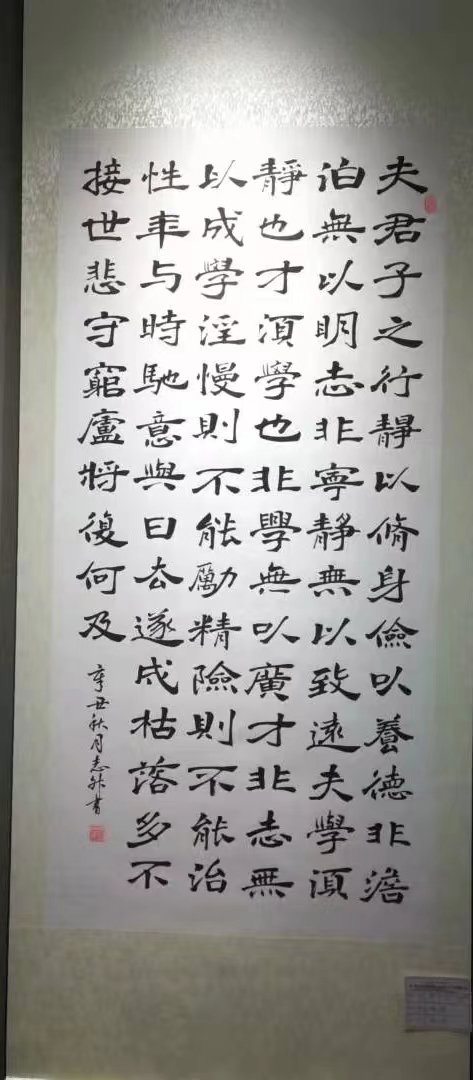 夫君子之行靜以脩身儉以養德非澹
泊無以明志非寧靜無以致遠夫學須
靜也才須學也非學無以廣才非志無
以成學淫慢則不能勵精險則不能治
性年与時馳意與日去遂成枯落多不
接世悲守窮廬將復何及
辛丑秋月志升書